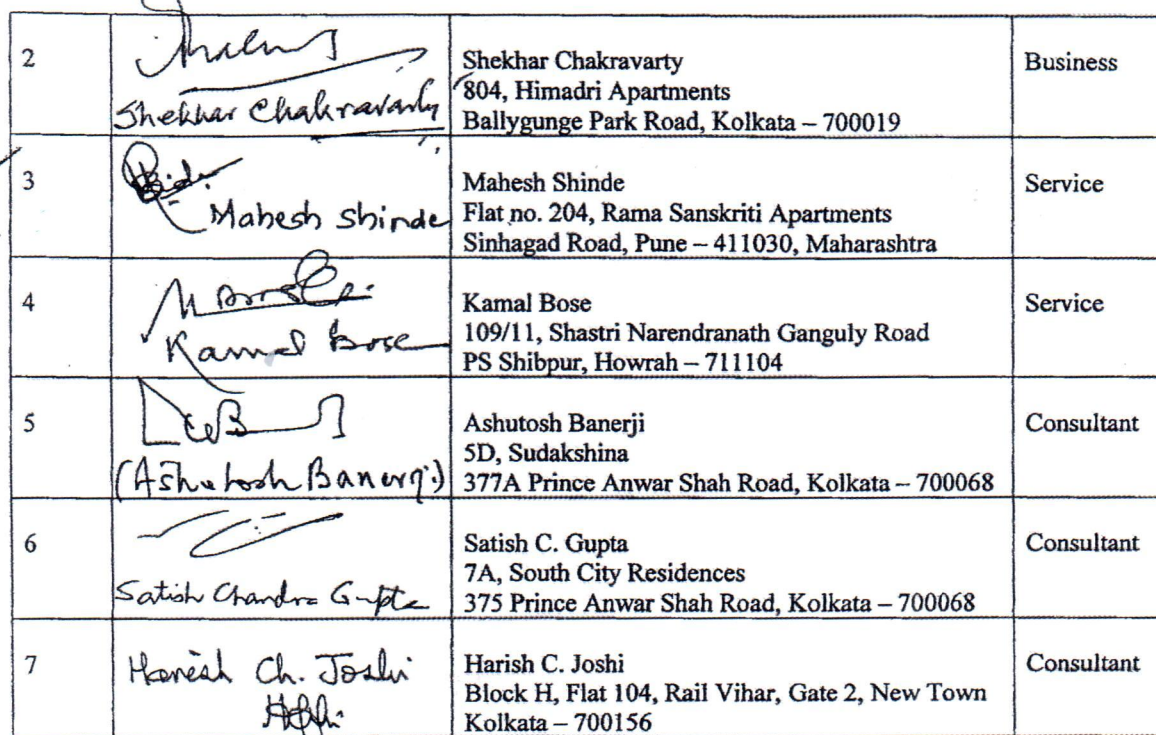 2
Shekhar Chakravarty
Shekhar Chakravarty
804, Himadri Apartments
Ballygunge Park Road, Kolkata – 700019
Business
3
Mahesh Shinde
Mahesh Shinde
Flat no. 204, Rama Sanskriti Apartments
Sinhagad Road, Pune – 411030, Maharashtra
Service
4
Kamal Bose
Kamal Bose
109/11, Shastri Narendranath Ganguly Road
PS Shibpur, Howrah – 711104
Service
5
(Ashutosh Banerji)
Ashutosh Banerji
5D, Sudakshina
377A Prince Anwar Shah Road, Kolkata – 700068
Consultant
6
Satish Chandra Gupta
Satish C. Gupta
7A, South City Residences
375 Prince Anwar Shah Road, Kolkata – 700068
Consultant
7
Harish Ch. Joshi
Harish C. Joshi
Block H, Flat 104, Rail Vihar, Gate 2, New Town
Kolkata – 700156
Consultant